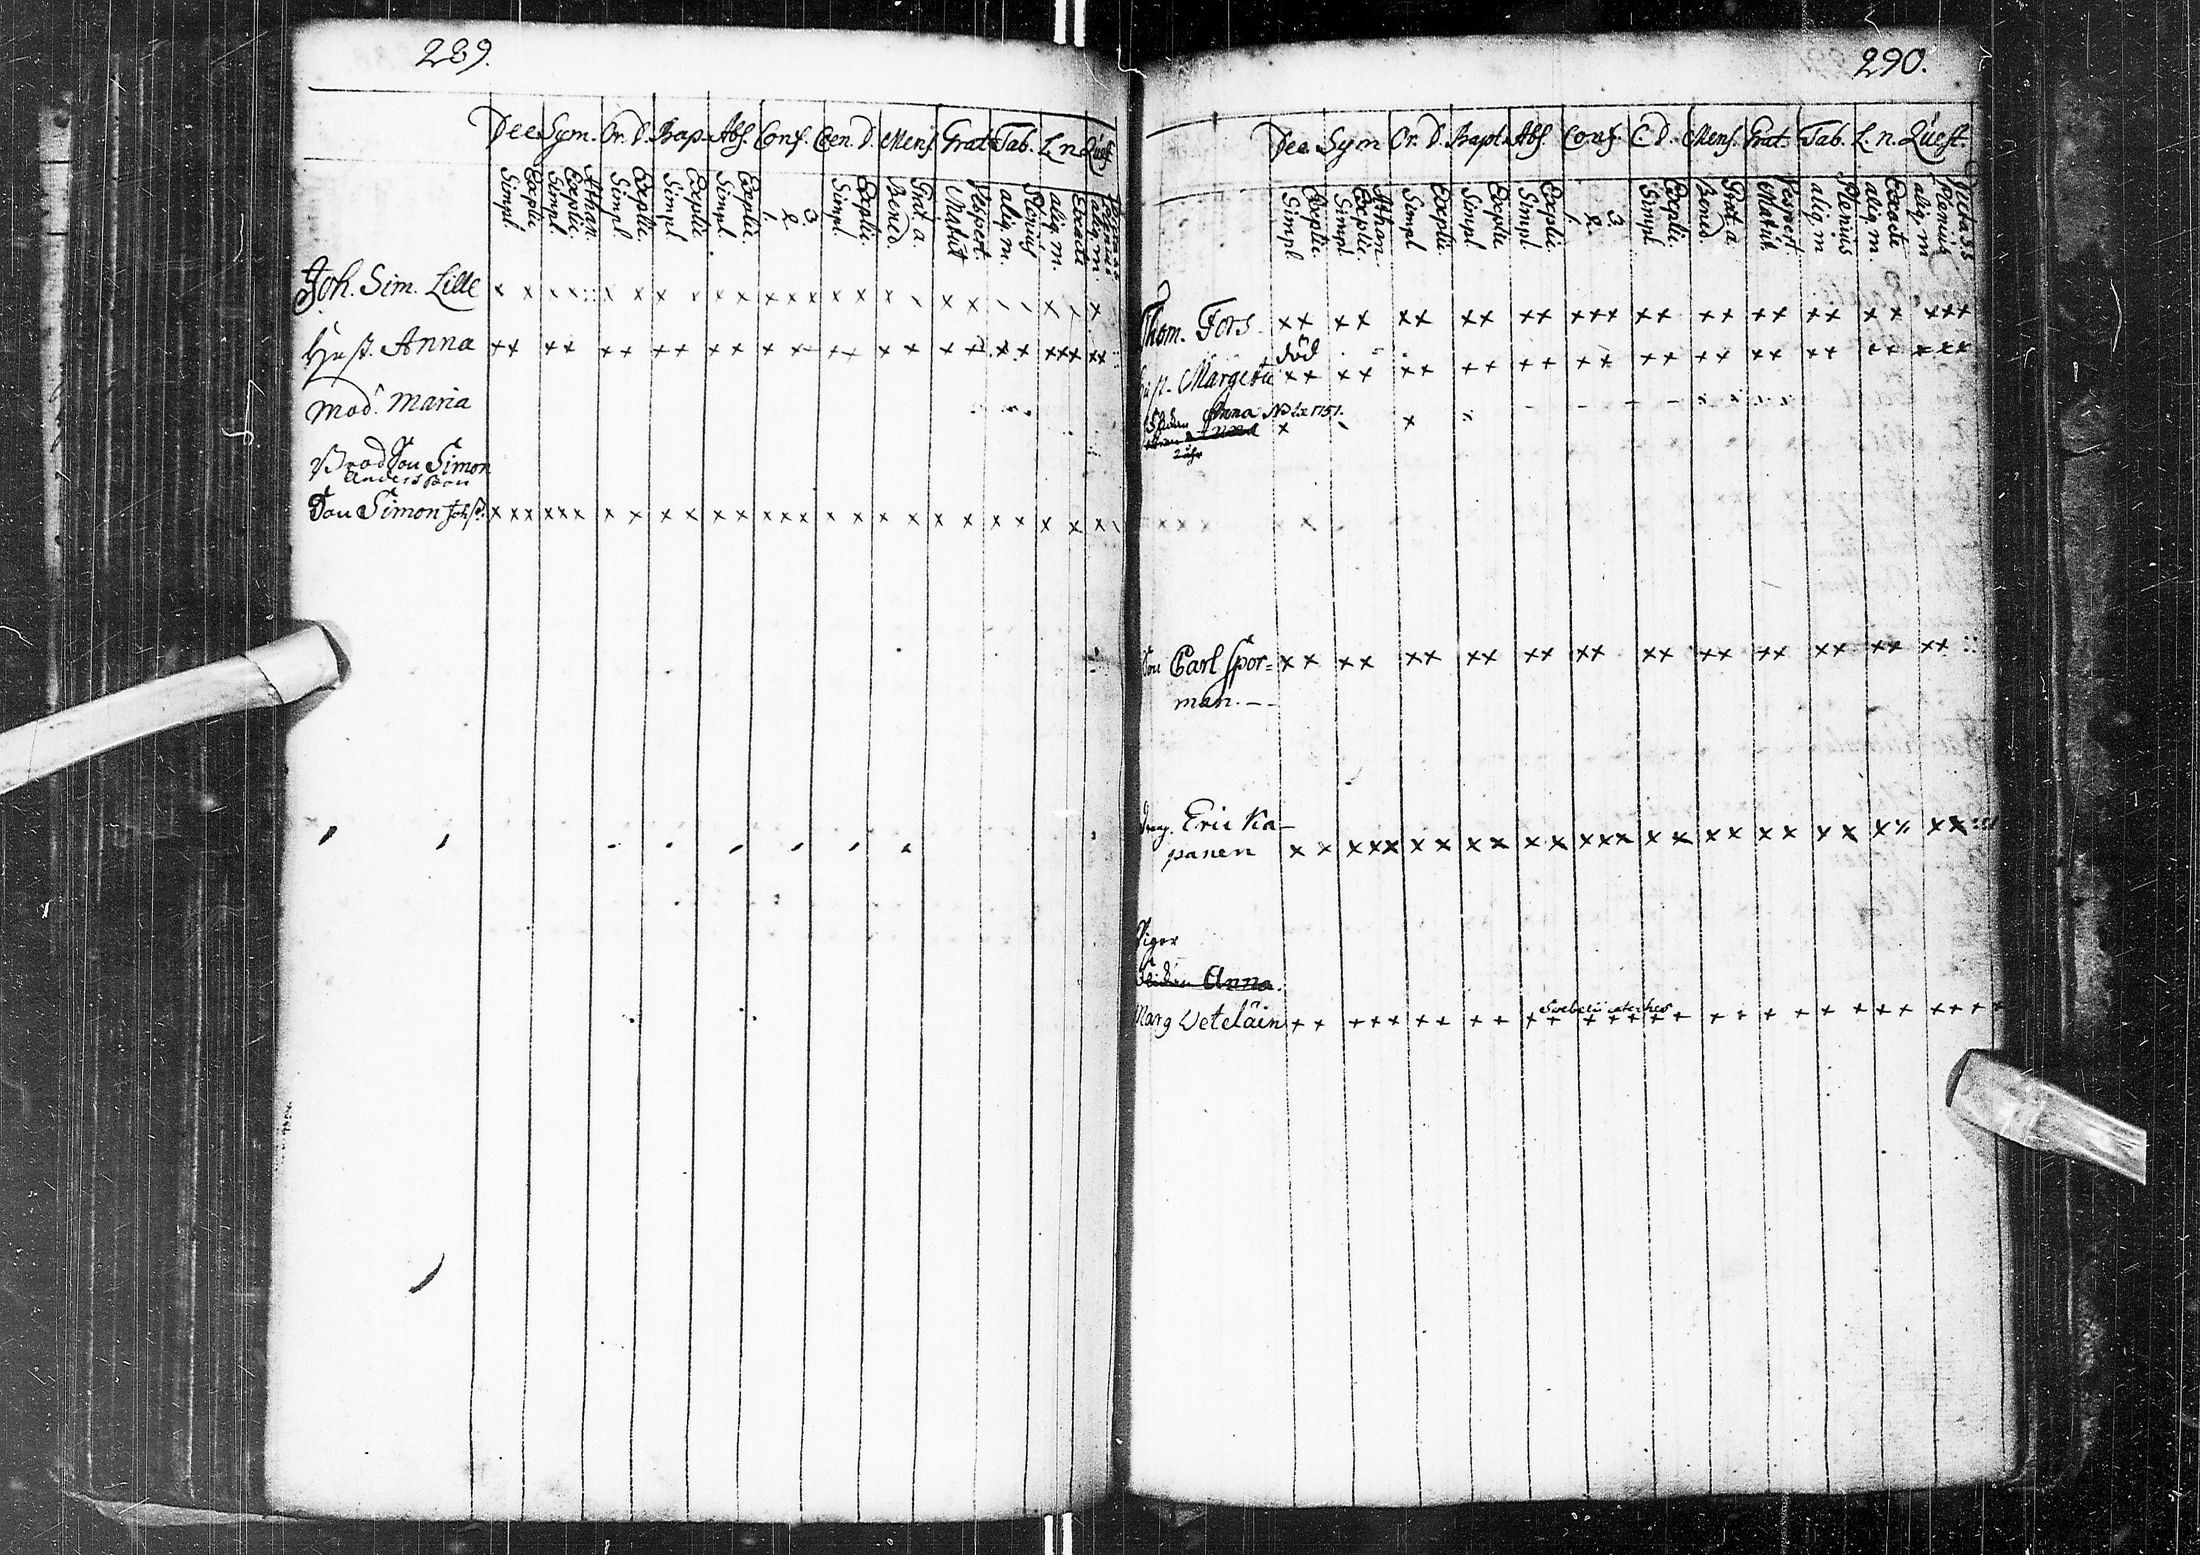 289.
Dec Sym. Or. D. Bap. Abs. Conf. Cen. D. Mens. Grat. Tab. L. n. Quæst.
Simpl Explic. Simpl Explic. Athan. Simpl Explic. Simpl Explic. Simpl Explic. 1. 2. 3. Simpl. Explic. Bened. Grat. a Matut Vespert. aliq. m. Plenius aliq. m. Exacte aliq. m. Plenius
Joh. Sim. Lille x x x x x x x x x x x x x x x x x x x x x x x x
Hust. Anna x x x x x x x x x x x x x x x x x x x x x x x x x x x
Mod. Maria
Simon
Anderss
Son Simon Joh x x x x x x x x x x x x x x x x x x x x x x x x x x x
290.
Dec Sym Or. D. Bapt. Abs. Conf. C. D. Mens. Grat Tab. L. n. Quæst.
Simpl Explic. Simpl Explic. Athan. Simpl Explic. Simpl Explic Simpl. Explic. 1. 2. 3 Simpl Explic. Bened. Grat. a Matut Vespert. aliq. m Plenius aliq. m. Exacte aliq. m Plenius Dicta S.S
Thom. Fors x x x x x x x x x x x x x x x x x x x x x x x x x x
död
Margeta x x x x x x x x x x x x x x x x x x x x x x x x x
Anna 1751.
x x
Son Carl Spor= x x x x x x x x x x x x x x x x x x x x x x x x
man. - -
Eric Ka-
panen x x x x x x x x x x x x x x x x x x x x x x x x x x
Pigor
Anna.
Marg Veteläin x x x x x x x x x x x x x x x x x x x x x x x x x x x